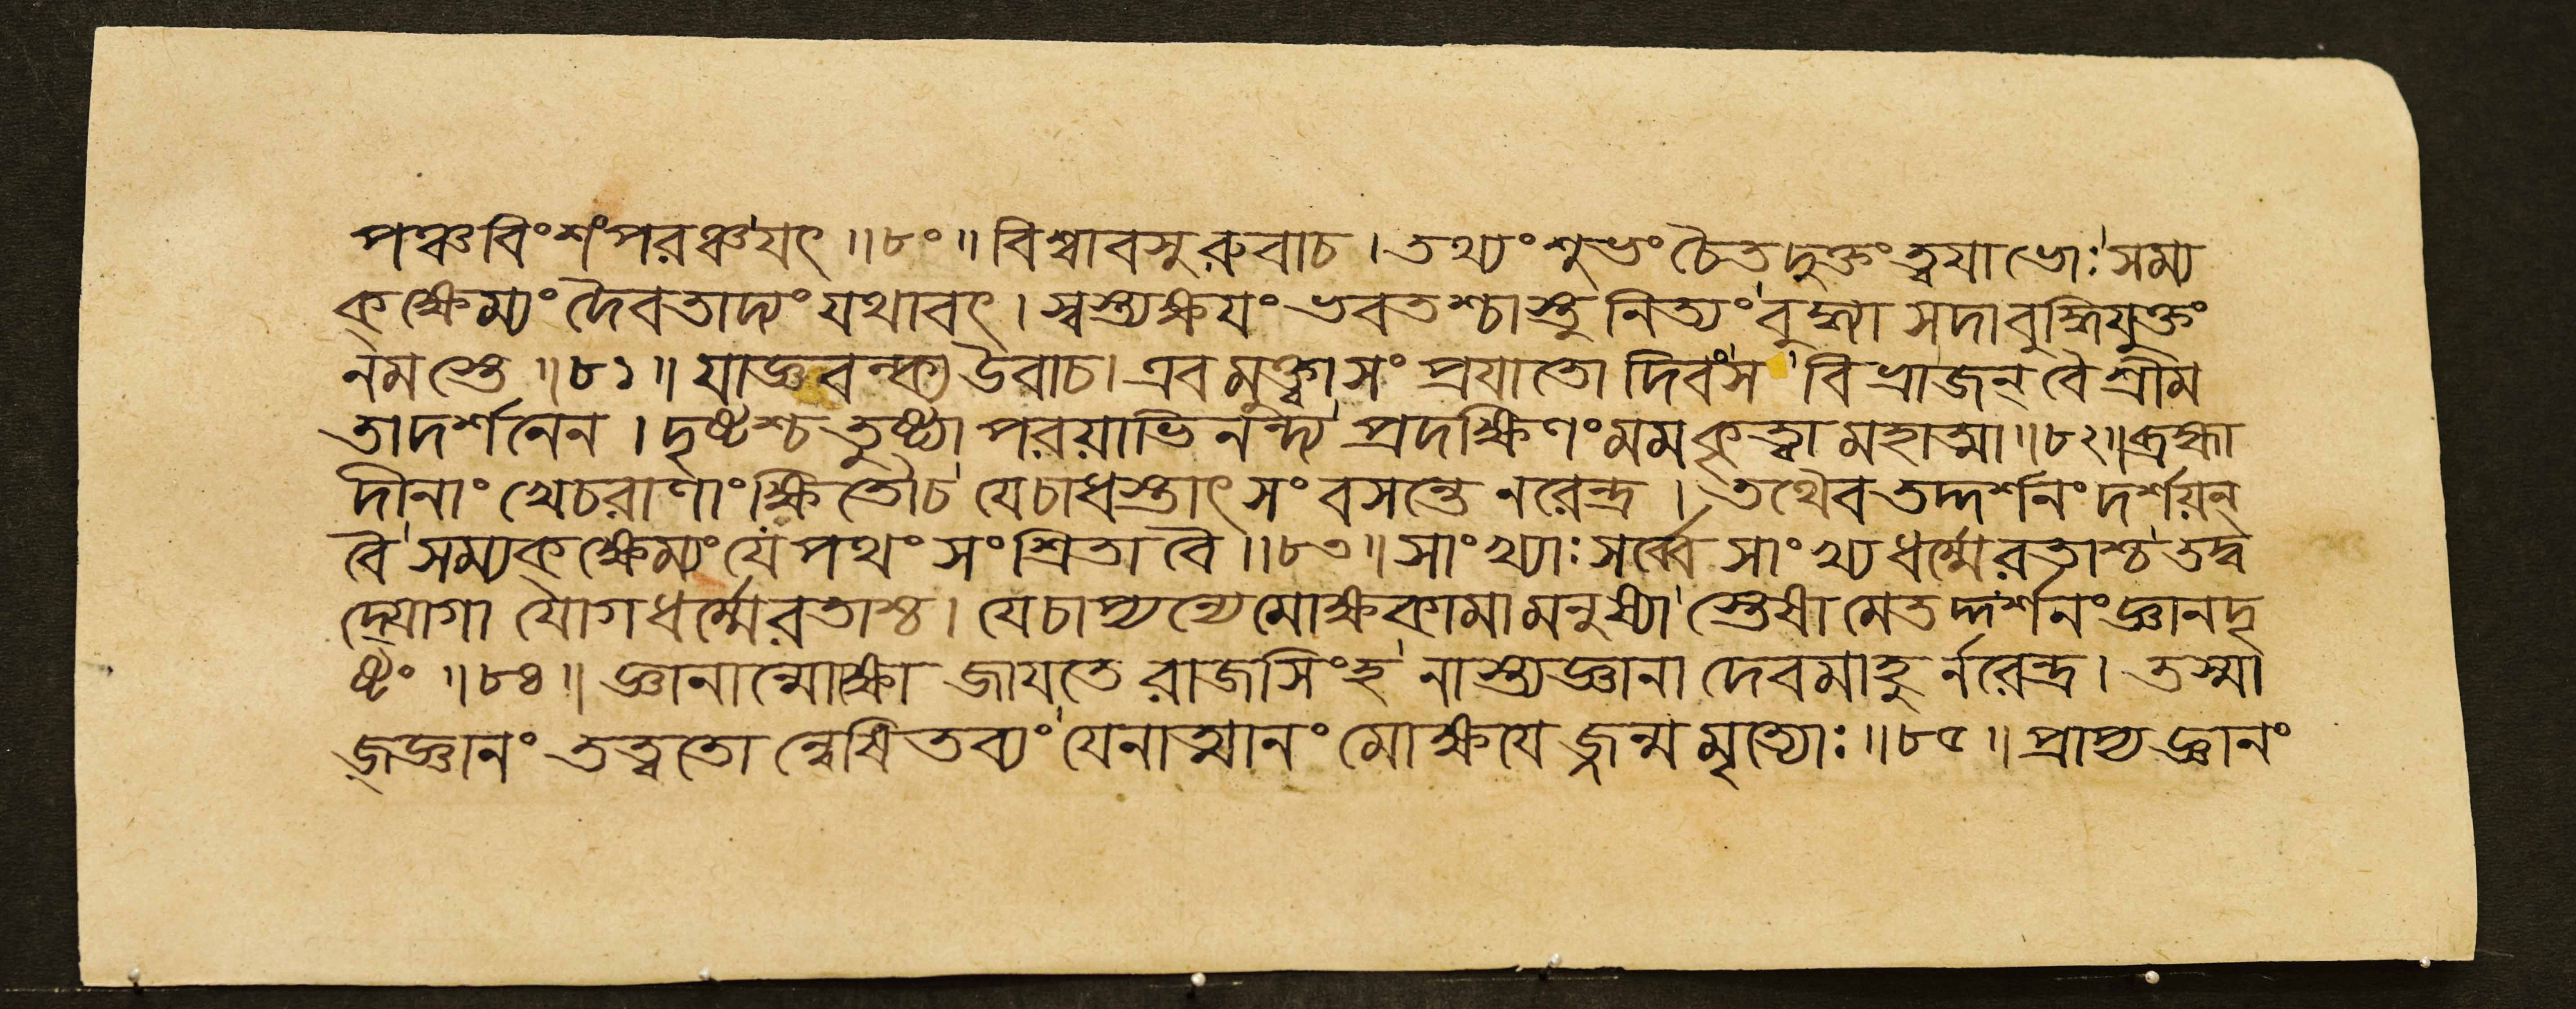 পঞ্চবিংশংপরঞ্চ'যৎ ॥৮০॥ বিশ্বাবসুরুবাচ । তথ্যং শুভং চৈতদুক্তং ত্বযা ভোঃ' সম্য
ক্ ক্ষেম্যং দৈবতাদ্যং যথাবৎ । স্বস্ত্যক্ষযং ভবতশ্চাস্তু নিত্যং' বুদ্ধ্যা সদাবুদ্ধিযুক্তং
নমস্তে ॥৮১॥ যাজ্ঞবল্ক্য উবাচ। এবমুক্ত্বা সং প্রযাতো দিবংস' বিভ্রাজন্ বৈ শ্রীম
তাদর্শনেন । দৃষ্টশ্চ তুষ্ট্যা পরয়াভিনন্দ্য' প্রদক্ষিণং মমকৃত্বা মহাত্মা ॥৮২॥ ব্রহ্মা
দীনাং খেচরাণাং ক্ষিতৌচ' যেচাধস্তাৎ সংবসন্তে নরেন্দ্র । তথৈব তদ্দর্শনং দর্শয়ন্
বৈ' সম্যক্ ক্ষেম্যং যে পথং সংশ্রিতা বৈ ॥৮৩॥ সাংখ্যাঃ সর্ব্বে সাংখ্যধর্ম্মেরতাশ্চ' তদ্ব
দ্যোগা যোগধর্ম্মেরতাশ্চ । যেচাপ্যন্যে মোক্ষকামা মনুষ্যা' স্তেষামেতদ্দর্শনং জ্ঞানদৃ
ষ্টং ॥৮৪॥ জ্ঞানান্মোক্ষো জাযতে রাজসিংহ' নাস্ত্যজ্ঞানা দেবমাহু র্নরেন্দ্র । তস্মা
জ্জ্ঞানং তত্ত্বতো ন্বেষিতব্যং' যেনাত্মানং মোক্ষযেজ্জন্মমৃত্যোঃ ॥৮৫॥ প্রাপ্য জ্ঞানং